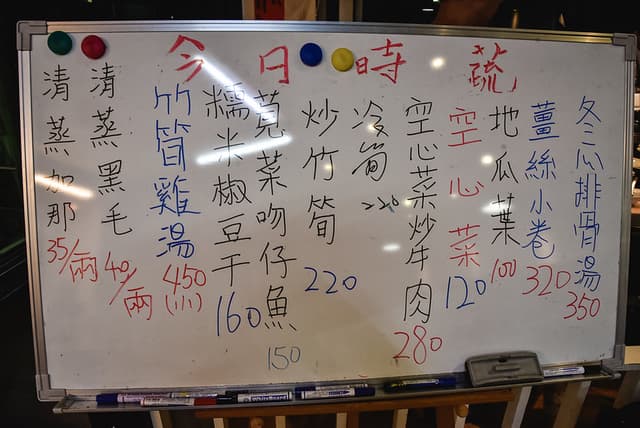 今日時蔬
冬瓜排骨湯 350
薑絲小卷 320
地瓜葉 100
空心菜 120
空心菜炒牛肉 280
冷筍 220
炒竹筍 220
莧菜吻仔魚 150
糯米椒豆干 160
竹筍雞湯 450 (小)
清蒸黑毛 40/兩
清蒸加那 35/兩
WhiteBoard